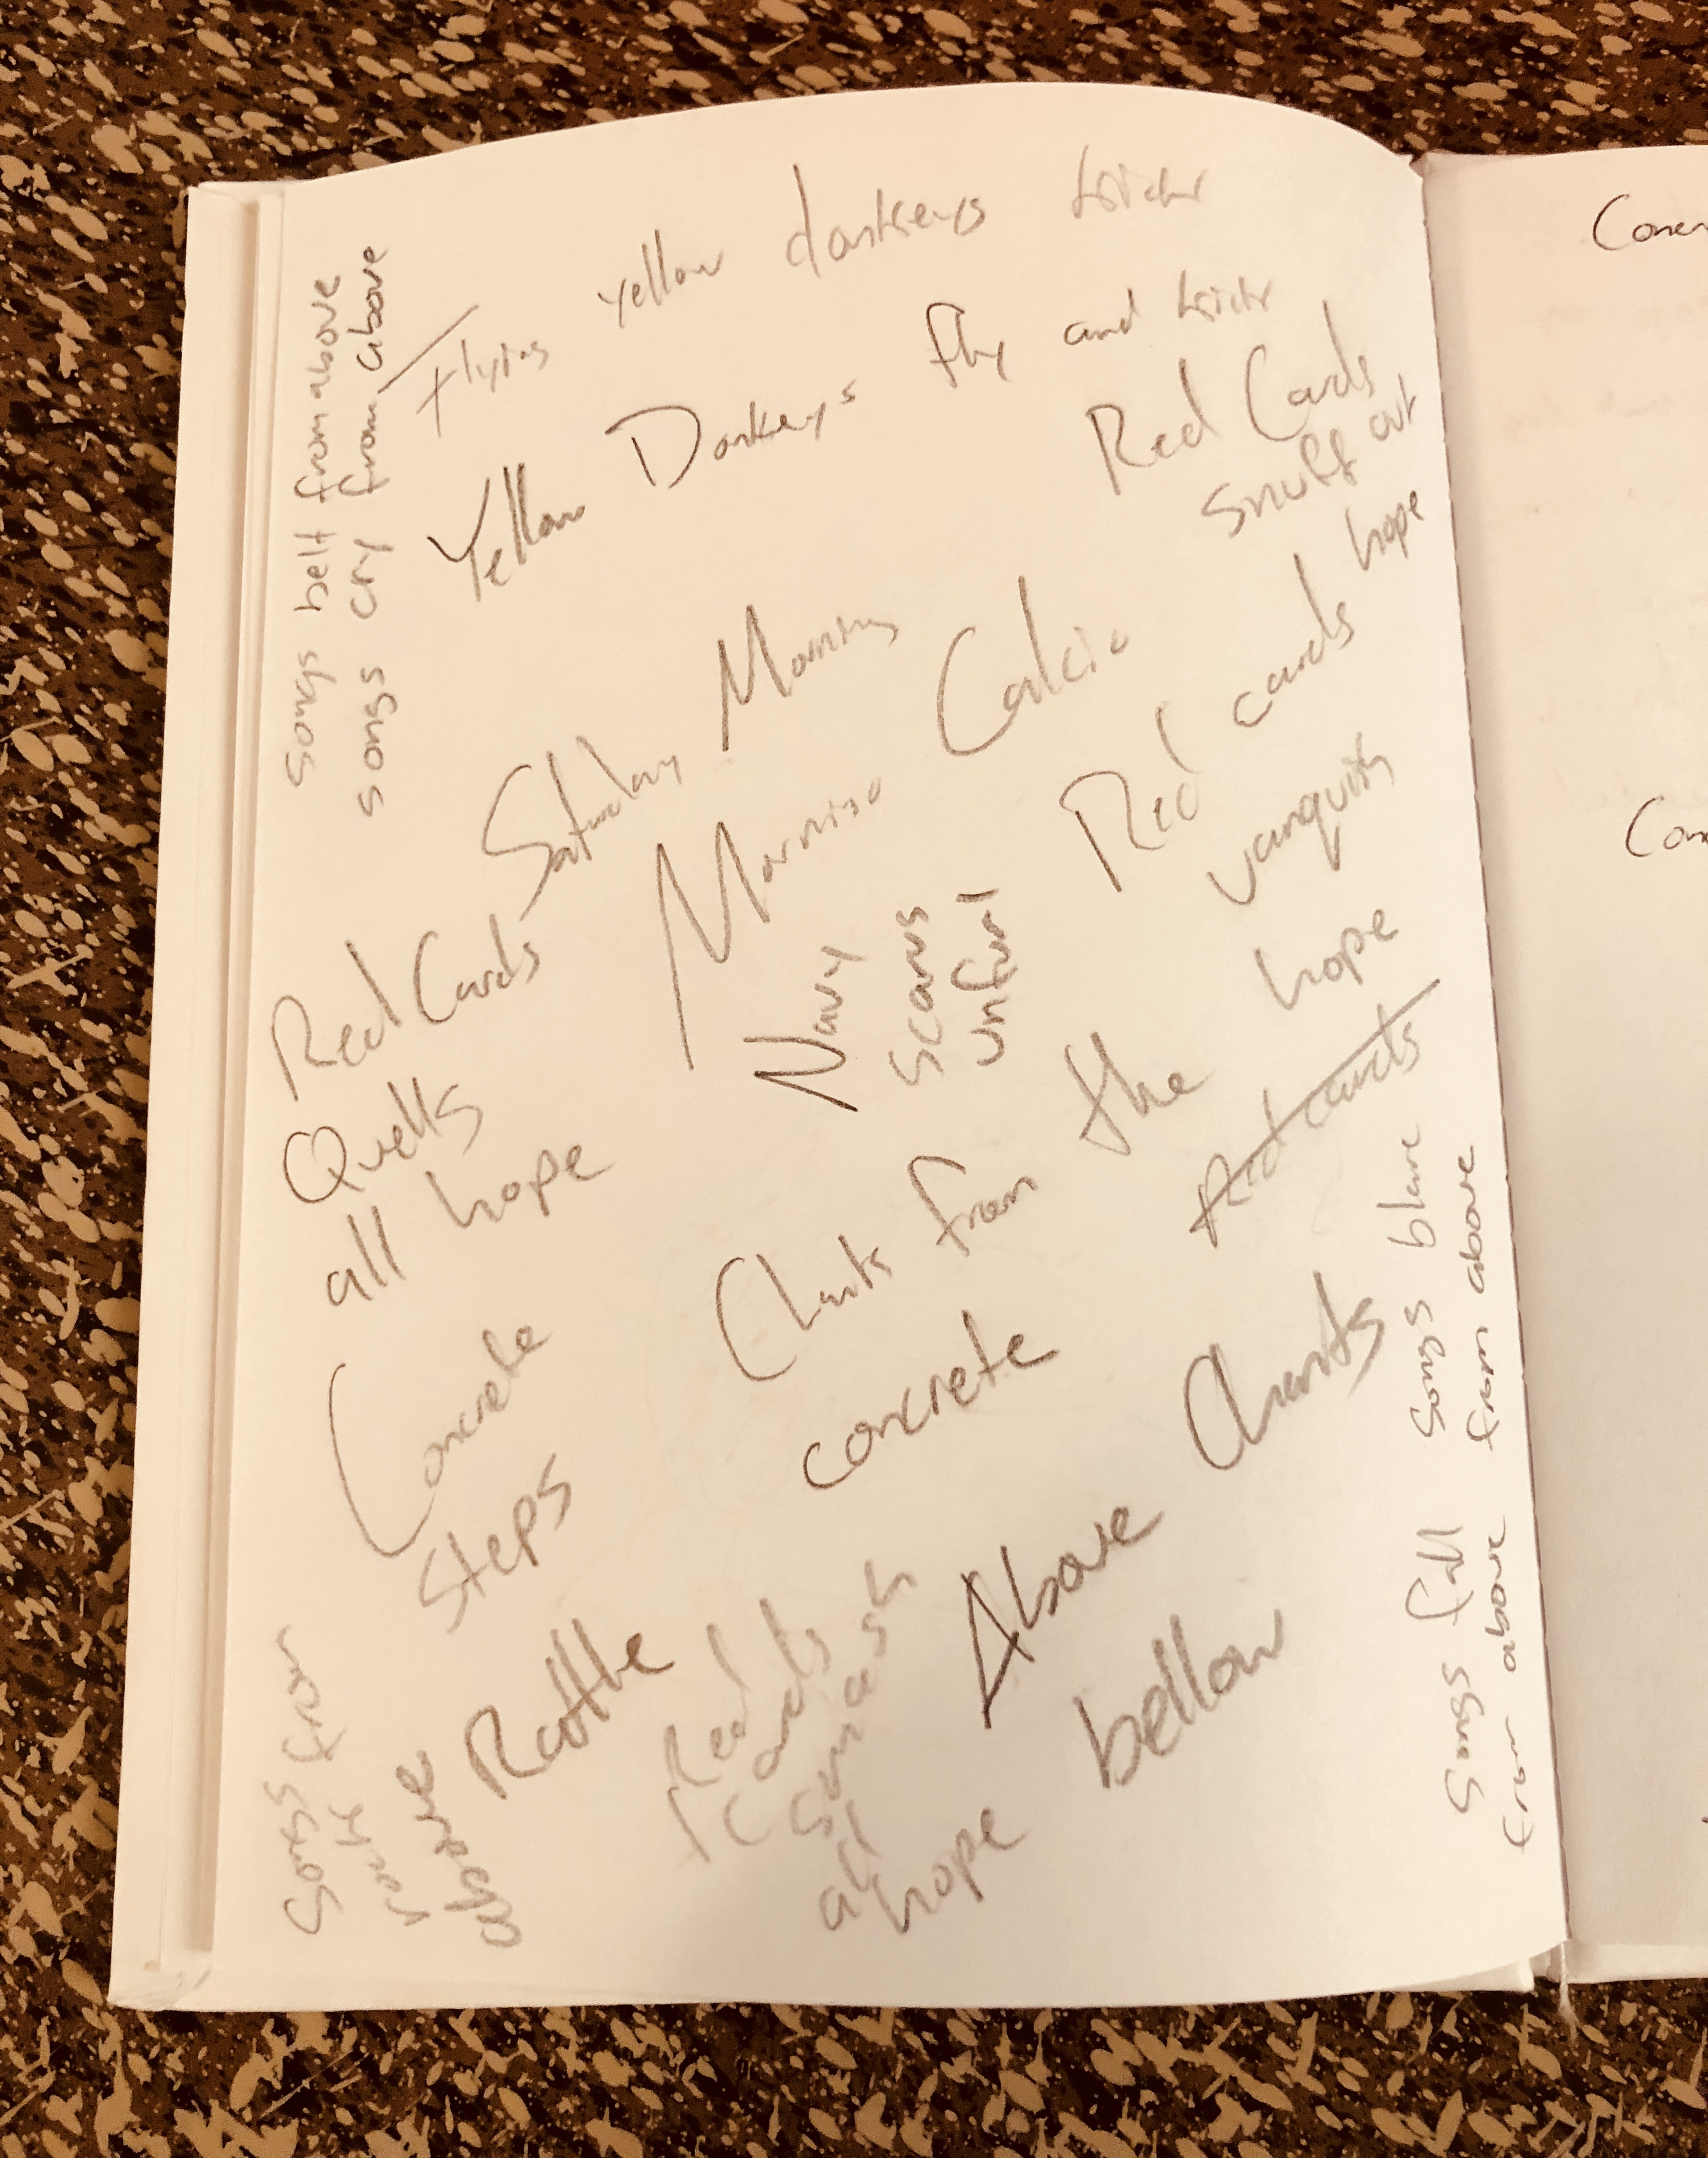 Flying yellow donkeys
Yellow Donkeys fly and
Red Cards
snuff out
hope
Songs belt from above
songs cry from above
Saturday Morning
Morning Calcio
Red cards
vanquish
hope
Red cards
Navy
scarves
unfurl
Red Cards
Quells
all hope
Chants from the
concrete
Concrete
Steps
Rattle
Above Chants
bellow
Red
Cards
smash
all
hope
Songs from
above
Songs blare
from above
Songs fall
from above